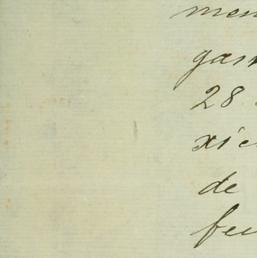 men
gas
28
xic
de
feu